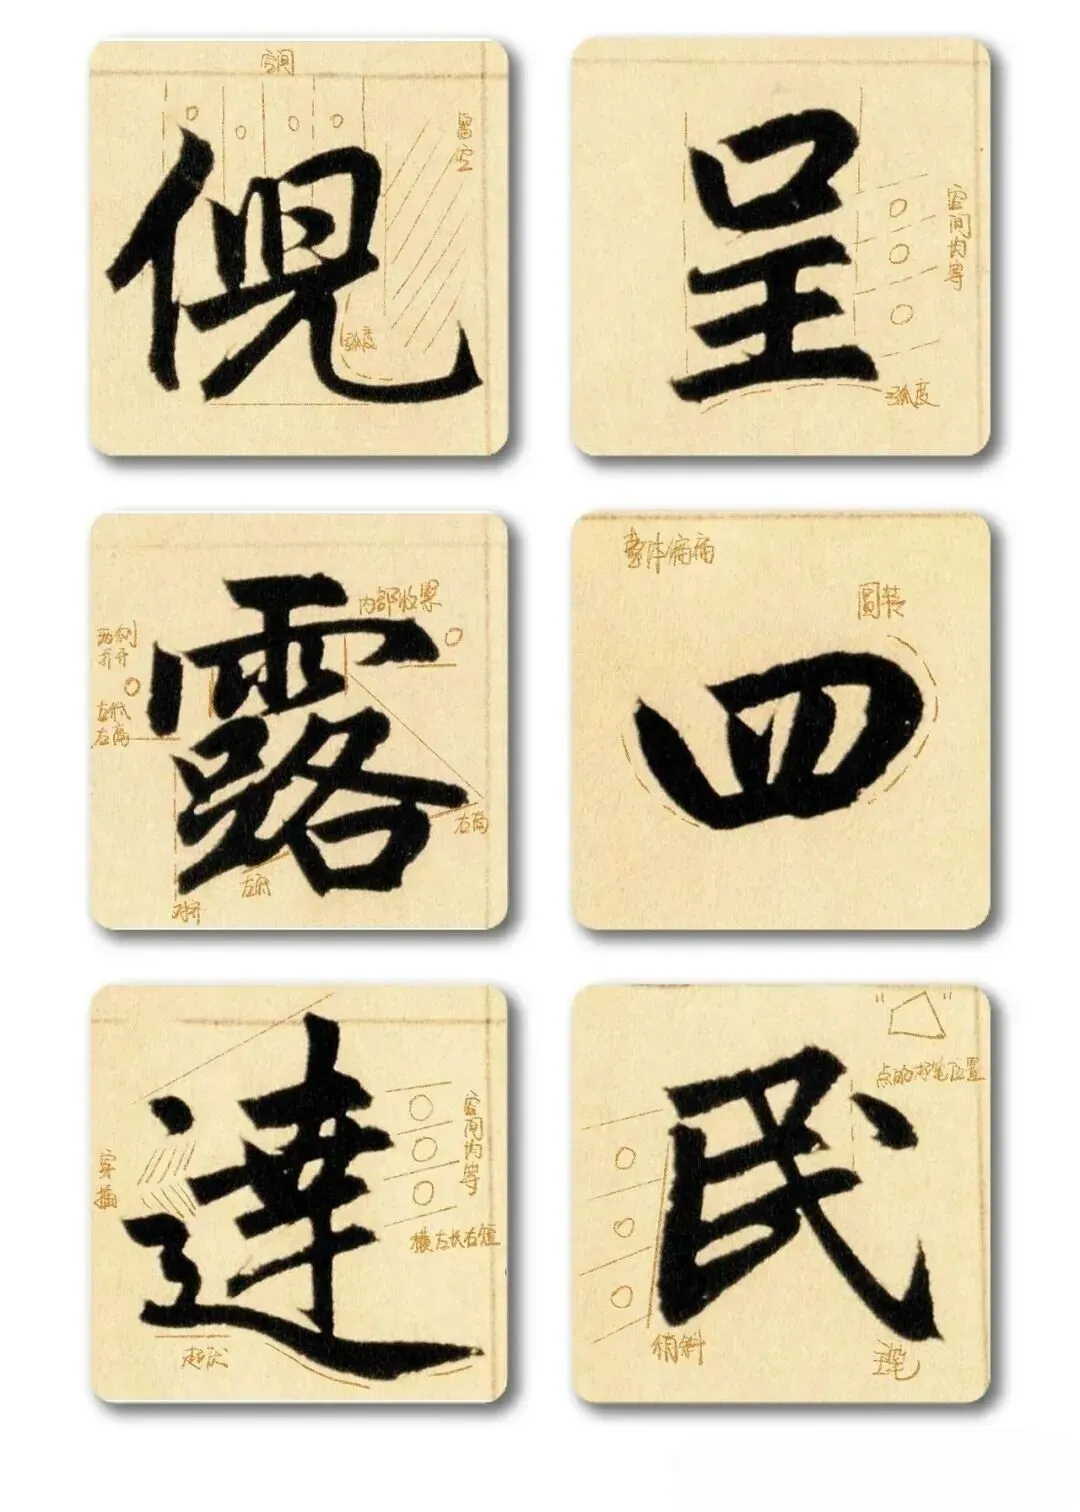 空间
留空
俔
弧度
呈
空间均等
弧度
内部收紧
两侧打开
左低
右高
露
左低
对齐
整体偏扁
圆转
四
穿插
達
空间均等
横左长右短
起伏
点的起笔位置
民
稍斜